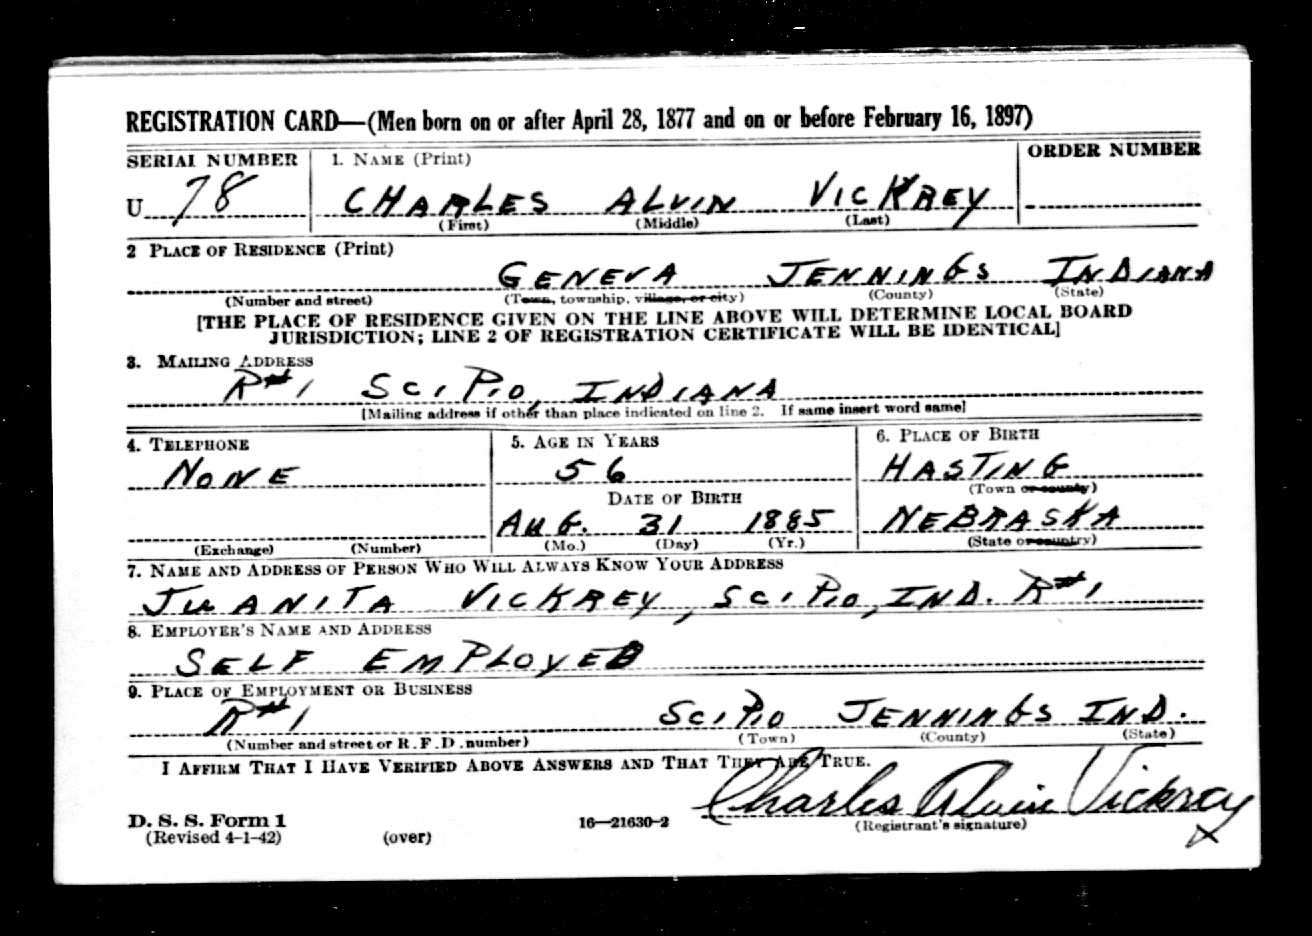 REGISTRATION CARD—(Men born on or after April 28, 1877 and on or before February 16, 1897)
SERIAL NUMBER 1. NAME (Print) ORDER NUMBER
U 78 CHARLES ALVIN VICKREY
(First) (Middle) (Last)
2 PLACE OF RESIDENCE (Print)
GENEVA JENNINGS INDIANA
(Number and street) (Town, township, village, or city) (County) (State)
[THE PLACE OF RESIDENCE GIVEN ON THE LINE ABOVE WILL DETERMINE LOCAL BOARD
JURISDICTION; LINE 2 OF REGISTRATION CERTIFICATE WILL BE IDENTICAL]
3. MAILING ADDRESS
R#1 SCIPIO, INDIANA
[Mailing address if other than place indicated on line 2. If same insert word same]
4. TELEPHONE 5. AGE IN YEARS 6. PLACE OF BIRTH
NONE 56 HASTING
DATE OF BIRTH (Town or county)
AUG. 31 1885 NEBRASKA
(Exchange) (Number) (Mo.) (Day) (Yr.) (State or country)
7. NAME AND ADDRESS OF PERSON WHO WILL ALWAYS KNOW YOUR ADDRESS
JUANITA VICKREY, SCIPIO, IND. R#1
8. EMPLOYER'S NAME AND ADDRESS
SELF EMPLOYED
9. PLACE OF EMPLOYMENT OR BUSINESS
R#1 SCIPIO JENNINGS IND.
(Number and street or R. F. D. number) (Town) (County) (State)
I AFFIRM THAT I HAVE VERIFIED ABOVE ANSWERS AND THAT THEY ARE TRUE.
Charles Alvin Vickrey
D. S. S. Form 1 16—21630-2 (Registrant's signature)
(Revised 4-1-42) (over) X